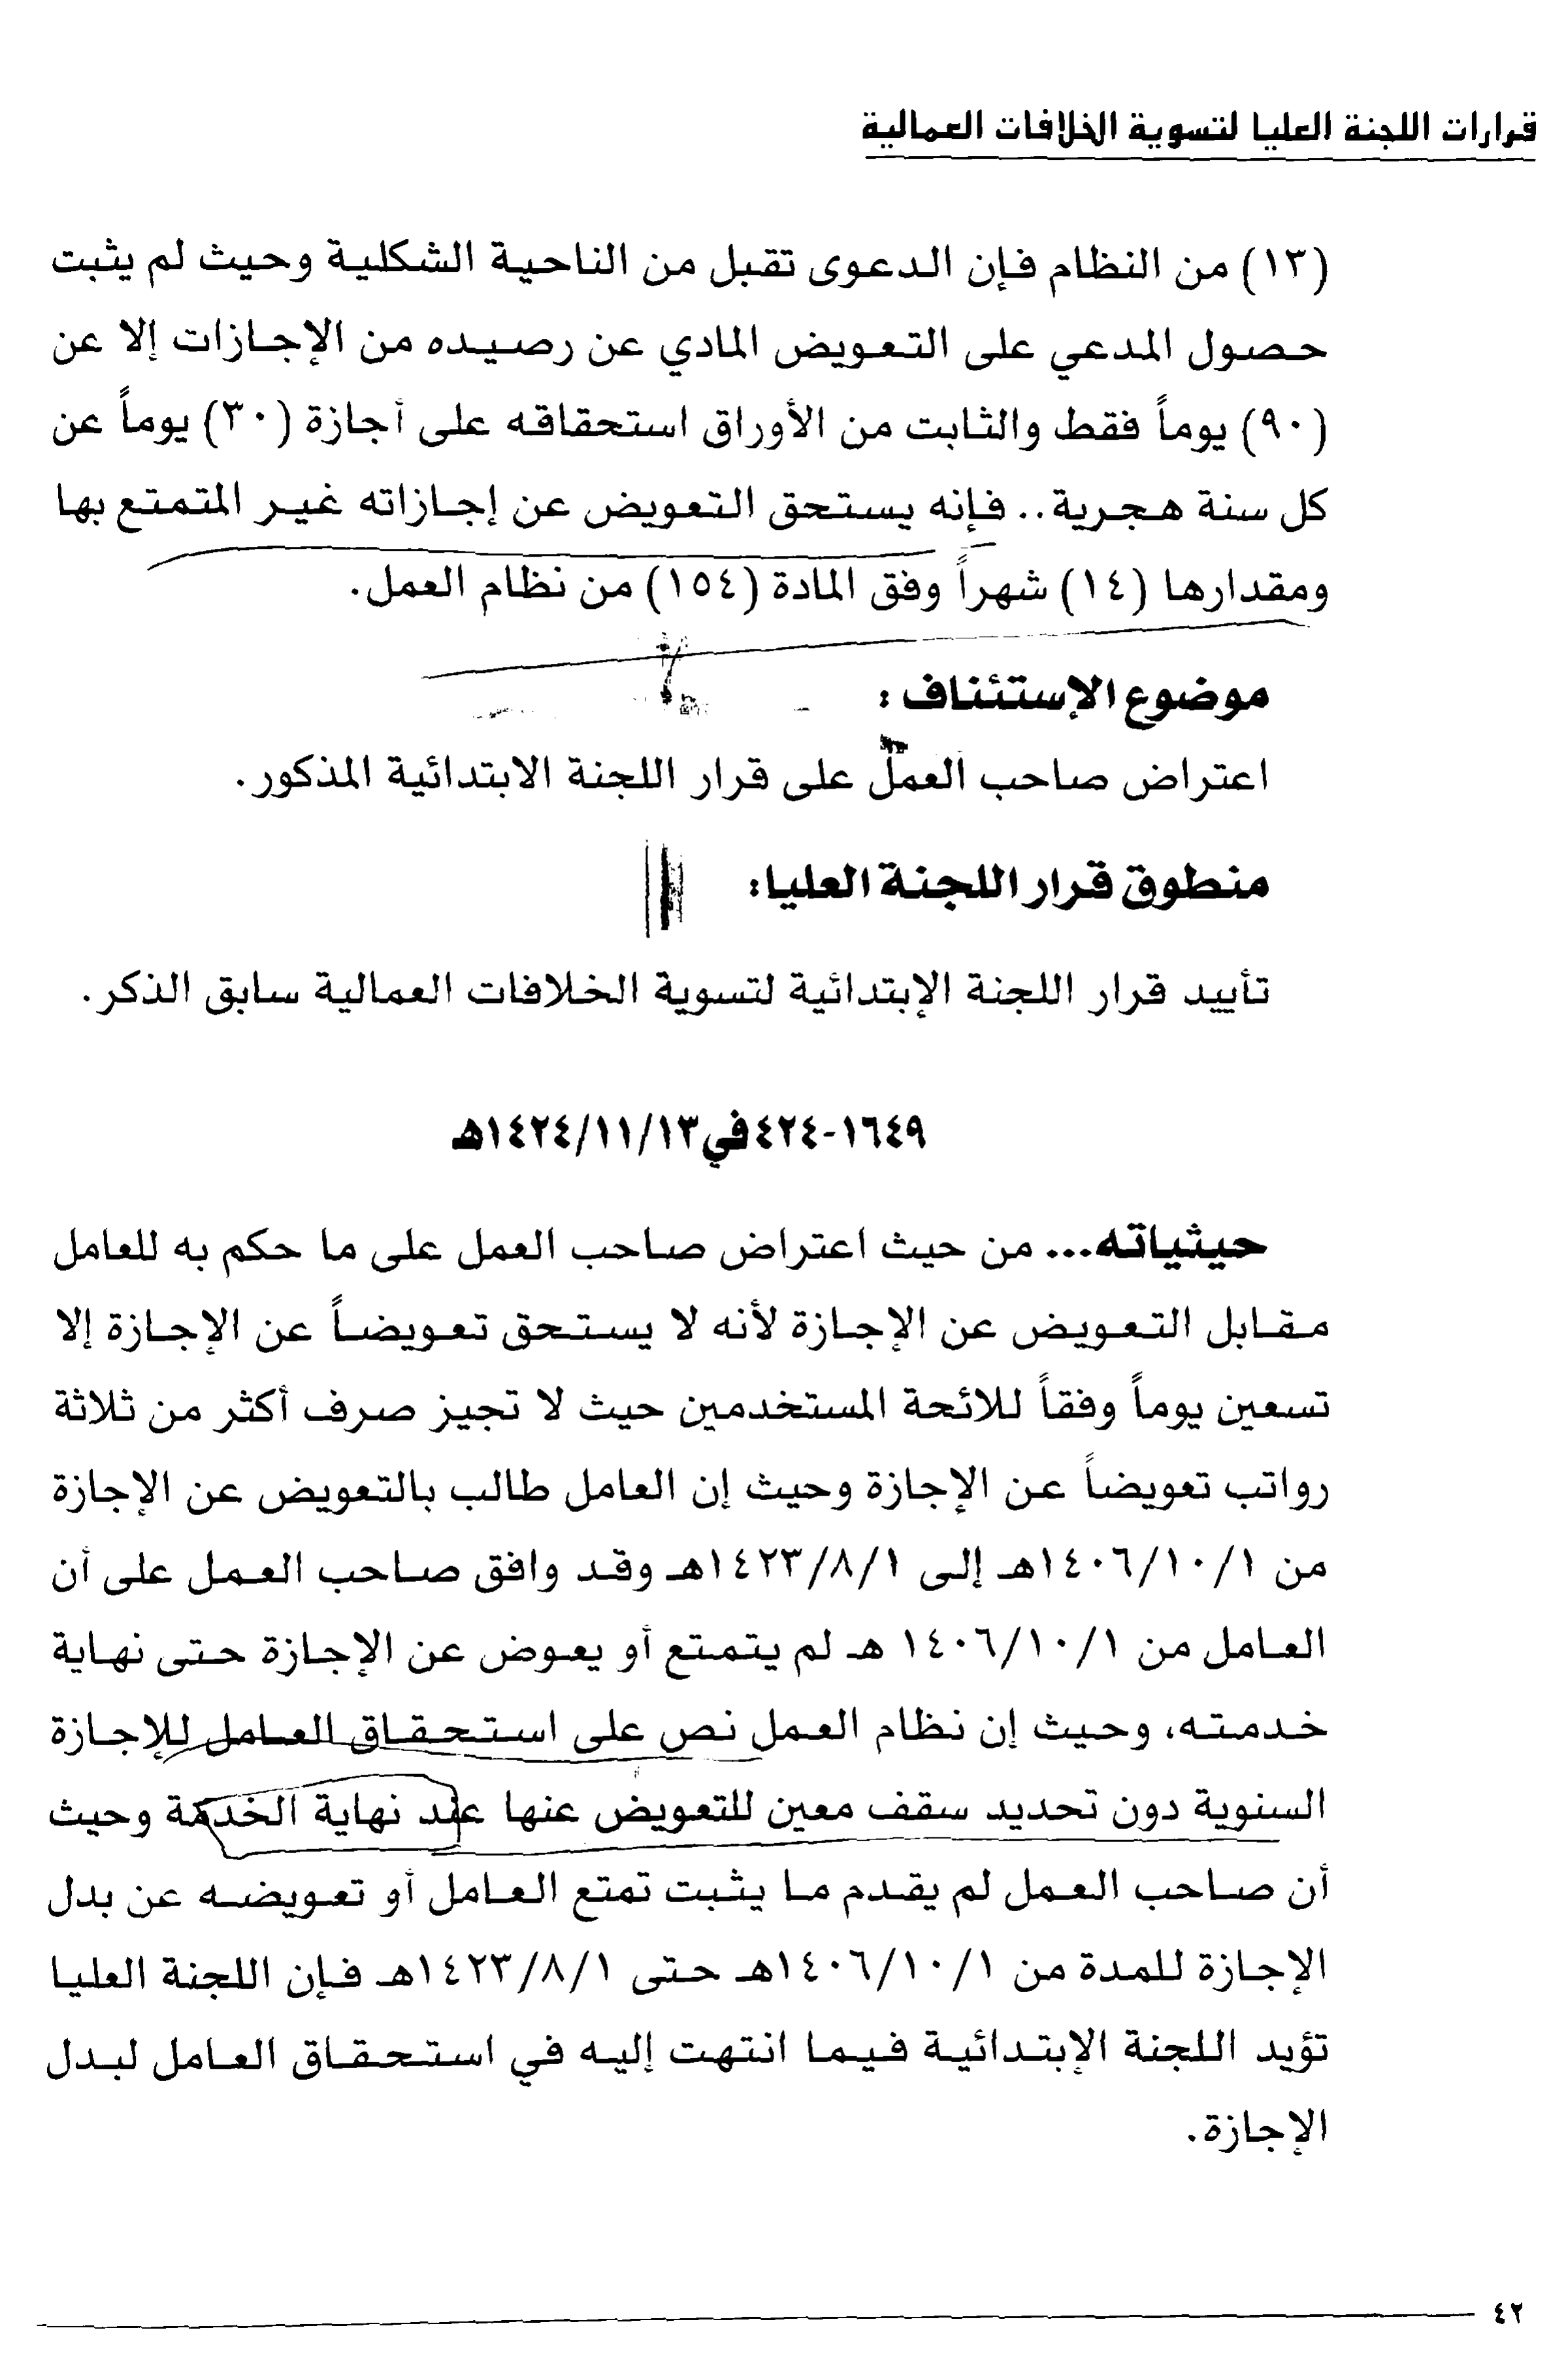 قرارات اللجنة العليا لتسوية الخلافات العمالية
(١٣) من النظام فإن الدعوى تقبل من الناحية الشكلية وحيث لم يثبت
حصول المدعي على التعويض المادي عن رصيده من الإجازات إلا عن
(٩٠) يوماً فقط والثابت من الأوراق استحقاقه على أجازة (٣٠) يوماً عن
كل سنة هجرية.. فإنه يستحق التعويض عن إجازاته غير المتمتع بها
ومقدارها (١٤) شهراً وفق المادة (١٥٤) من نظام العمل.
موضوع الإستئناف :
اعتراض صاحب العمل على قرار اللجنة الابتدائية المذكور.
منطوق قرار اللجنة العليا:
تأييد قرار اللجنة الإبتدائية لتسوية الخلافات العمالية سابق الذكر.
١٦٤٩-٤٢٤ في ١٤٢٤/١١/١٣هـ
حيثياته... من حيث اعتراض صاحب العمل على ما حكم به للعامل
مقابل التعويض عن الإجازة لأنه لا يستحق تعويضاً عن الإجازة إلا
تسعين يوماً وفقاً للائحة المستخدمين حيث لا تجيز صرف أكثر من ثلاثة
رواتب تعويضاً عن الإجازة وحيث إن العامل طالب بالتعويض عن الإجازة
من ١٤٠٦/١٠/١هـ إلى ١٤٢٣/٨/١هـ وقد وافق صاحب العمل على أن
العامل من ١٤٠٦/١٠/١ هـ لم يتمتع أو يعوض عن الإجازة حتى نهاية
خدمته، وحيث إن نظام العمل نص على استحقاق العامل للإجازة
السنوية دون تحديد سقف معين للتعويض عنها عند نهاية الخدمة وحيث
أن صاحب العمل لم يقدم ما يثبت تمتع العامل أو تعويضه عن بدل
الإجازة للمدة من ١٤٠٦/١٠/١هـ حتى ١٤٢٣/٨/١هـ فإن اللجنة العليا
تؤيد اللجنة الإبتدائية فيما انتهت إليه في استحقاق العامل لبدل
الإجازة.
٤٢